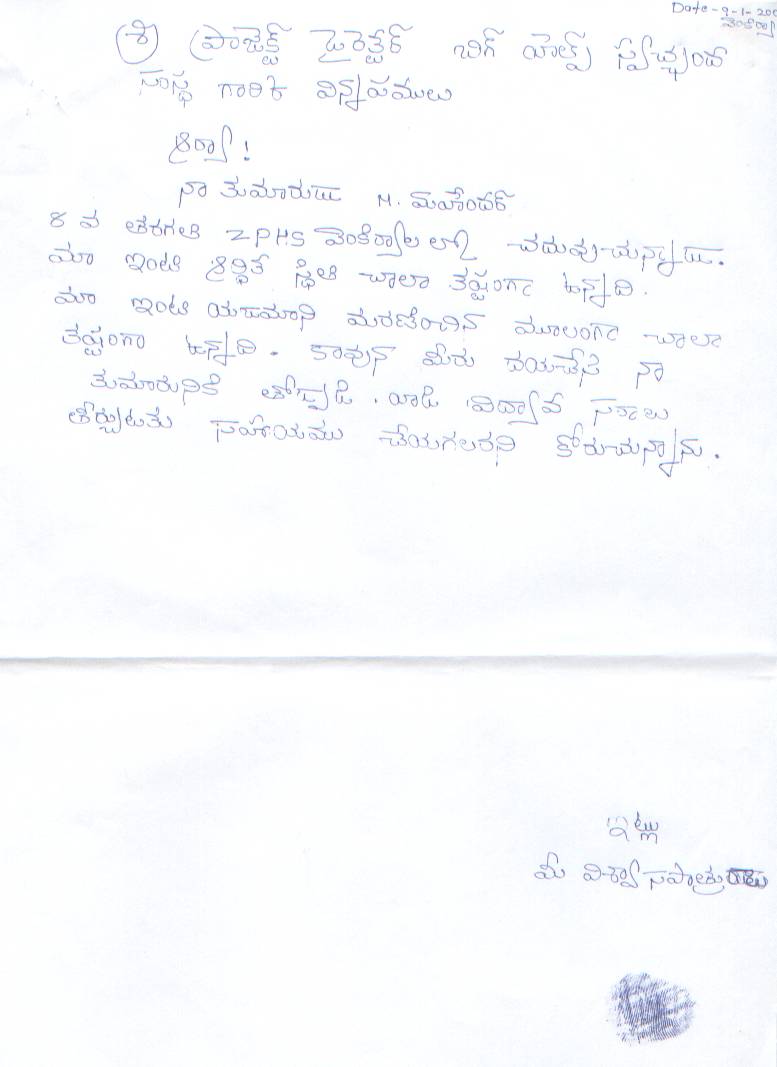 Date - 9-1-200
వెంకిర్యాల
(శ్రీ) ప్రాజెక్ట్ డైరెక్టర్ బిగ్ హెల్ప్ స్వచ్ఛంద
సంస్థ గారికి విన్నపములు
ఆర్యా!
నా కుమారుడు M. మహేందర్
8 వ తరగతి ZPHS వెంకిర్యాల లో చదువుచున్నాడు.
మా ఇంటి ఆర్థిక స్థితి చాలా కష్టంగా ఉన్నది.
మా ఇంటి యజమాని మరణించిన మూలంగా చాలా
కష్టంగా ఉన్నది. కావున మీరు దయచేసి నా
కుమారునికి తోడ్పడి వాడి విద్యావసరాలు
తీర్చుటకు సహాయము చేయగలరని కోరుచున్నాను.
ఇట్లు
మీ విశ్వాసపాత్రురాలు